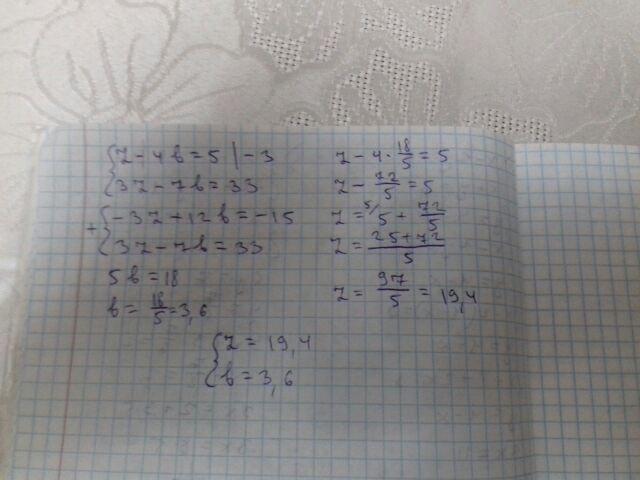 {z - 4b = 5 | -3
{3z - 7b = 33
+ {-3z + 12b = -15
{3z - 7b = 33
5b = 18
b = 18/5 = 3,6
z - 4 · 18/5 = 5
z - 72/5 = 5
z = 5/ 5 + 72/5
z = 25+72/5
z = 97/5 = 19,4
{z = 19,4
{b = 3,6